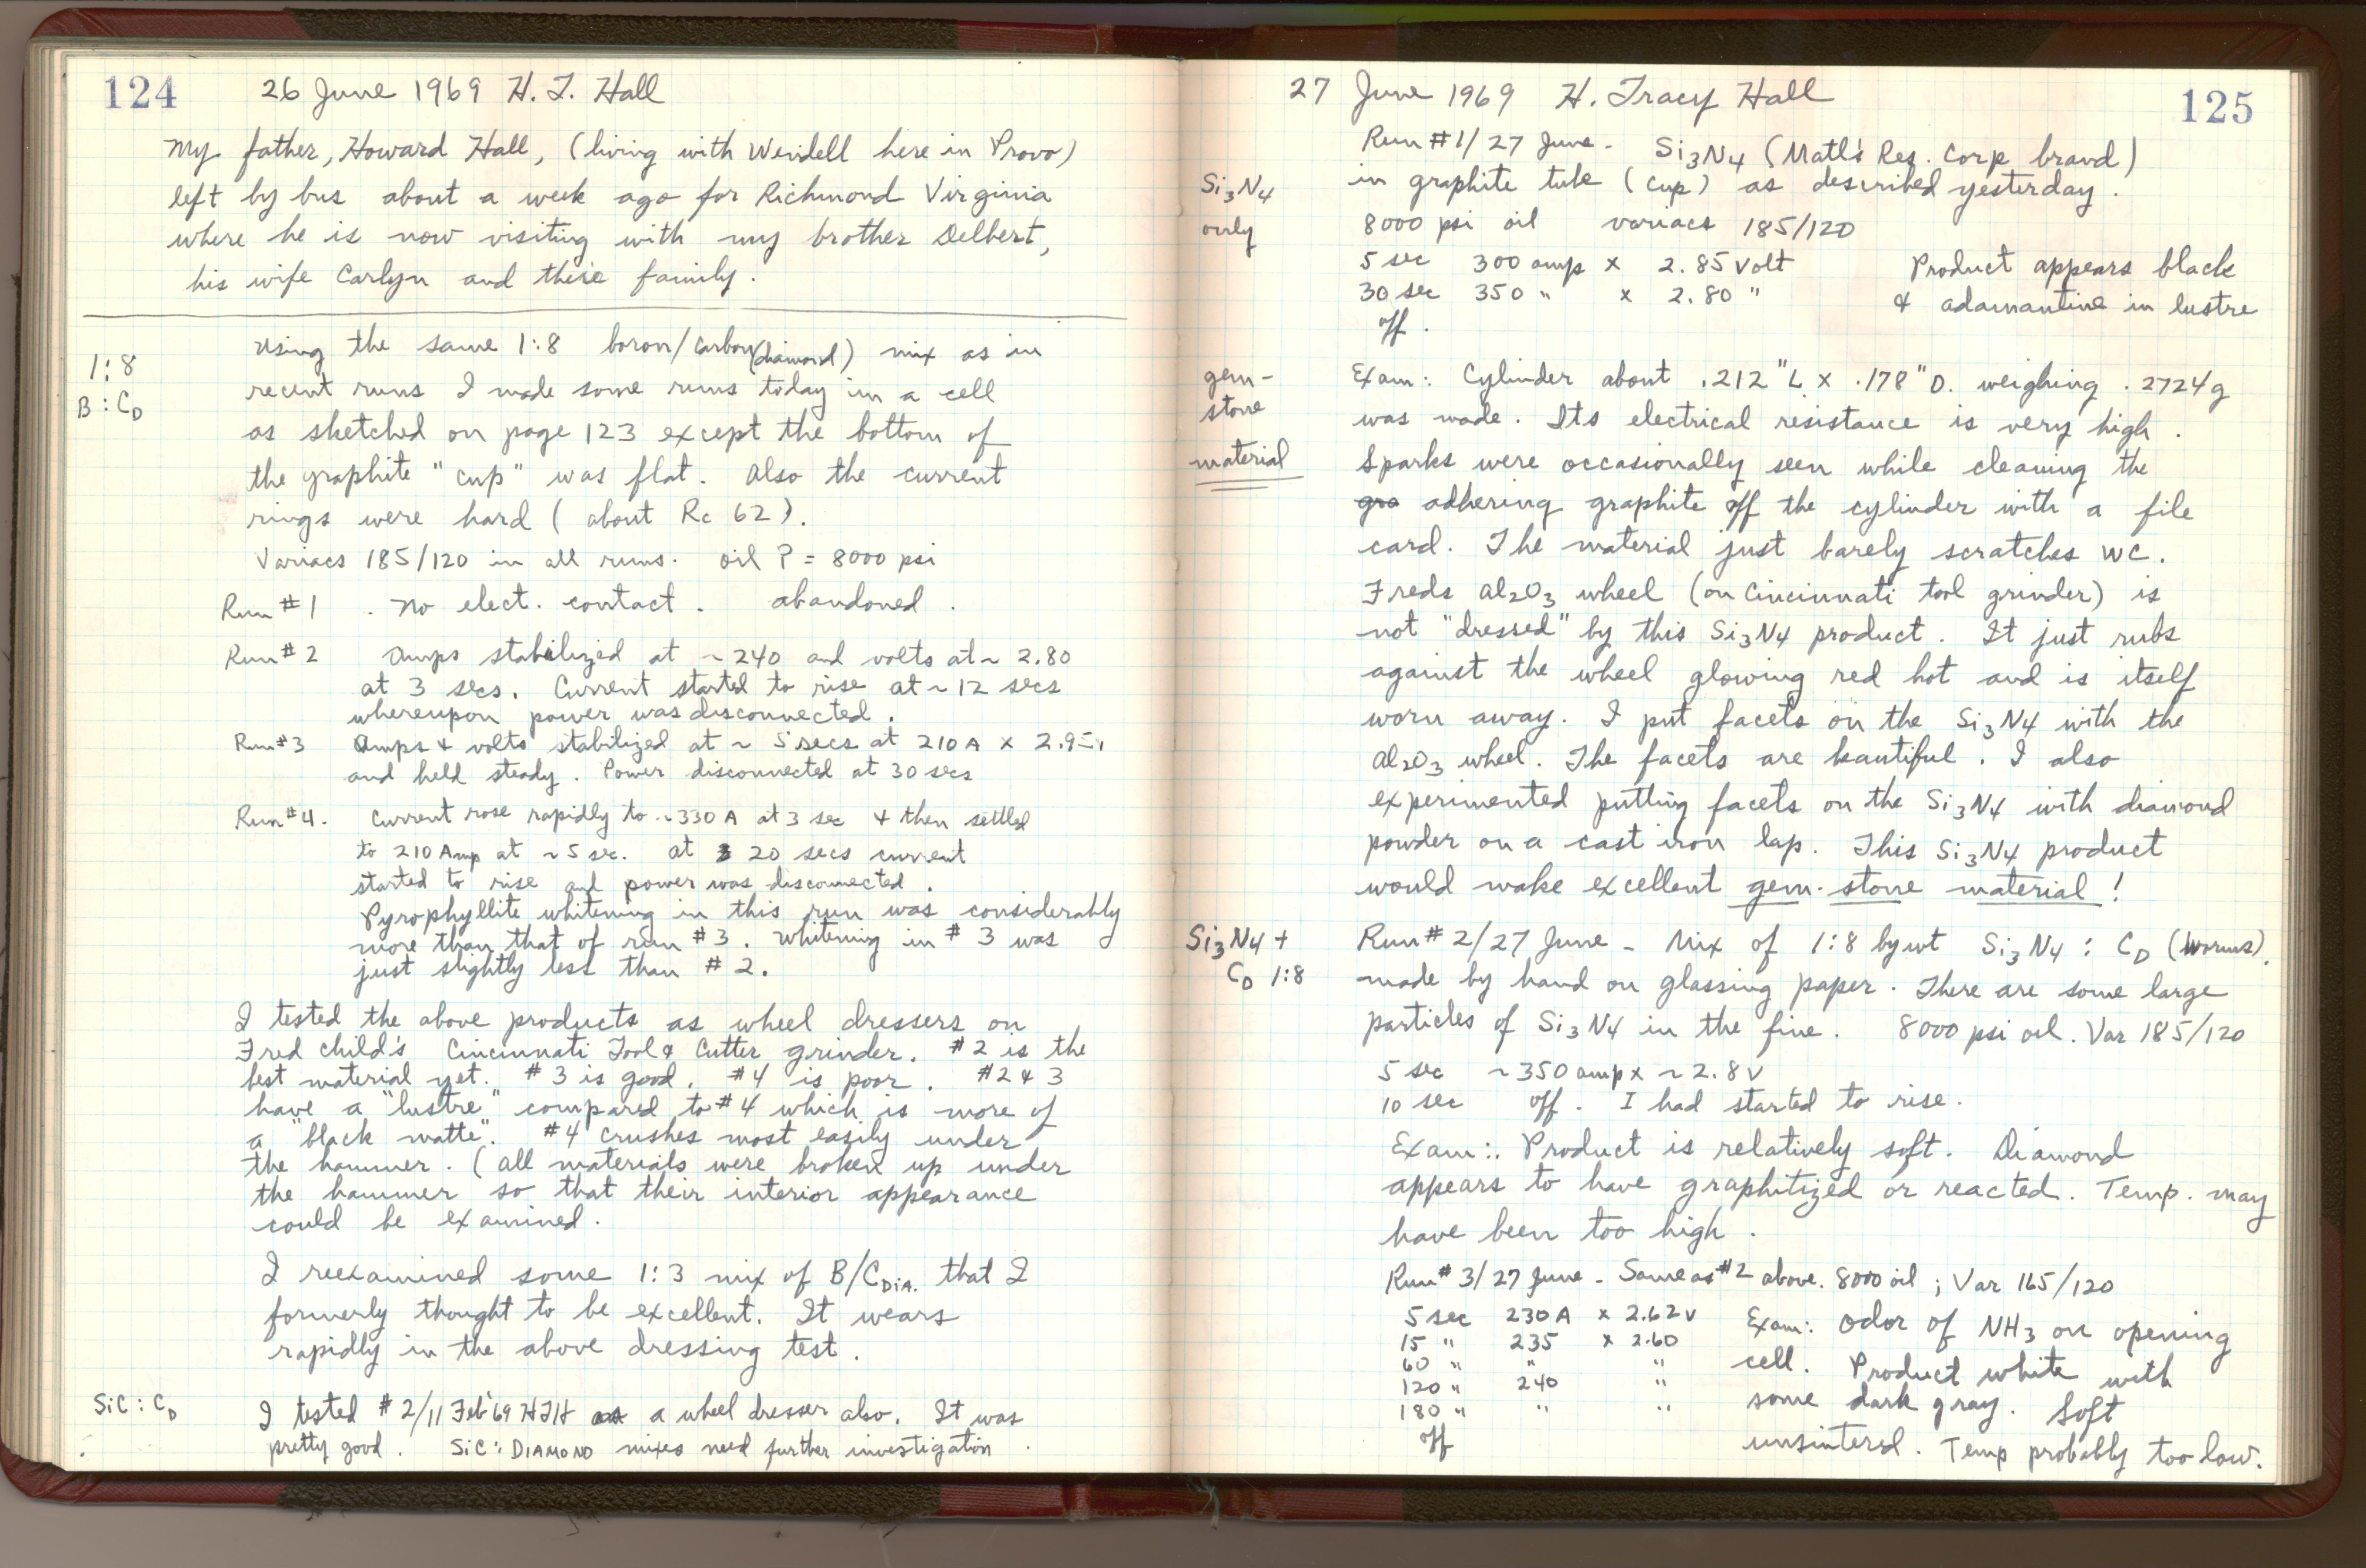 124 26 June 1969 H. T. Hall
My father, Howard Hall, (living with Wendell here in Provo)
left by bus about a week ago for Richmond Virginia
where he is now visiting with my brother Delbert,
his wife Carlyn and their family.
Using the same 1:8 boron/carbon (diamond) mix as in
1:8
recent runs I made some runs today in a cell
B : CD
as sketched on page 123 except the bottom of
the graphite "cup" was flat. Also the current
rings were hard (about Rc 62).
Variacs 185/120 in all runs. oil P = 8000 psi
Run #1 . No elect. contact. abandoned.
Run #2 Amps stabilized at ~ 240 and volts at ~ 2.80
at 3 secs. Current started to rise at ~ 12 secs
whereupon power was disconnected.
Run #3 Amps & volts stabilized at ~ 5 secs at 210 A x 2.95
and held steady. Power disconnected at 30 secs
Run #4. Current rose rapidly to ~330 A at 3 sec & then settled
to 210 Amp at ~ 5 sec. at 20 secs current
started to rise and power was disconnected.
Pyrophyllite whitening in this run was considerably
more than that of run #3. Whitening in #3 was
just slightly less than #2.
I tested the above products as wheel dressers on
Fred Child's Cincinnati Tool & Cutter grinder. #2 is the
best material yet. #3 is good. #4 is poor. #2 & 3
have a "lustre" compared to #4 which is more of
a "black matte". #4 crushes most easily under
the hammer. (All materials were broken up under
the hammer so that their interior appearance
could be examined.
I reexamined some 1:3 mix of B/CDIA. that I
formerly thought to be excellent. It wears
rapidly in the above dressing test.
SiC : CD I tested #2/11 Feb '69 HTH as a wheel dresser also. It was
pretty good. SiC : DIAMOND mixes need further investigation.
27 June 1969 H. Tracy Hall 125
Run #1/27 June - Si3N4 (Matl's Res. Corp brand)
Si3N4 in graphite tube (cup) as described yesterday.
only 8000 psi oil variacs 185/120
5 sec 300 amp x 2.85 volt Product appears black
30 sec 350 " x 2.80 " & adamantine in lustre
off.
gem- Exam: Cylinder about .212" L x .178" D. weighing .2724 g
stone was made. Its electrical resistance is very high.
material Sparks were occasionally seen while cleaning the
gra adhering graphite off the cylinder with a file
card. The material just barely scratches WC.
Freds Al2O3 wheel (on Cincinnati tool grinder) is
not "dressed" by this Si3N4 product. It just rubs
against the wheel glowing red hot and is itself
worn away. I put facets on the Si3N4 with the
Al2O3 wheel. The facets are beautiful. I also
experimented putting facets on the Si3N4 with diamond
powder on a cast iron lap. This Si3N4 product
would make excellent gem-stone material!
Si3N4 + Run #2/27 June - Mix of 1:8 by wt Si3N4 : CD (Worms).
CD 1:8 made by hand on glassing paper. There are some large
particles of Si3N4 in the fine. 8000 psi oil. Var 185/120
5 sec ~350 amp x ~ 2.8 V
10 sec off. I had started to rise.
Exam:. Product is relatively soft. Diamond
appears to have graphitized or reacted. Temp. may
have been too high.
Run #3/27 June - Same as #2 above. 8000 oil ; Var 165/120
5 sec 230 A x 2.62 V Exam: Odor of NH3 on opening
15 " 235 x 2.60
60 " " " cell. Product white with
120 " 240 "
180 " " " some dark gray. Soft
off unsintered. Temp probably too low.